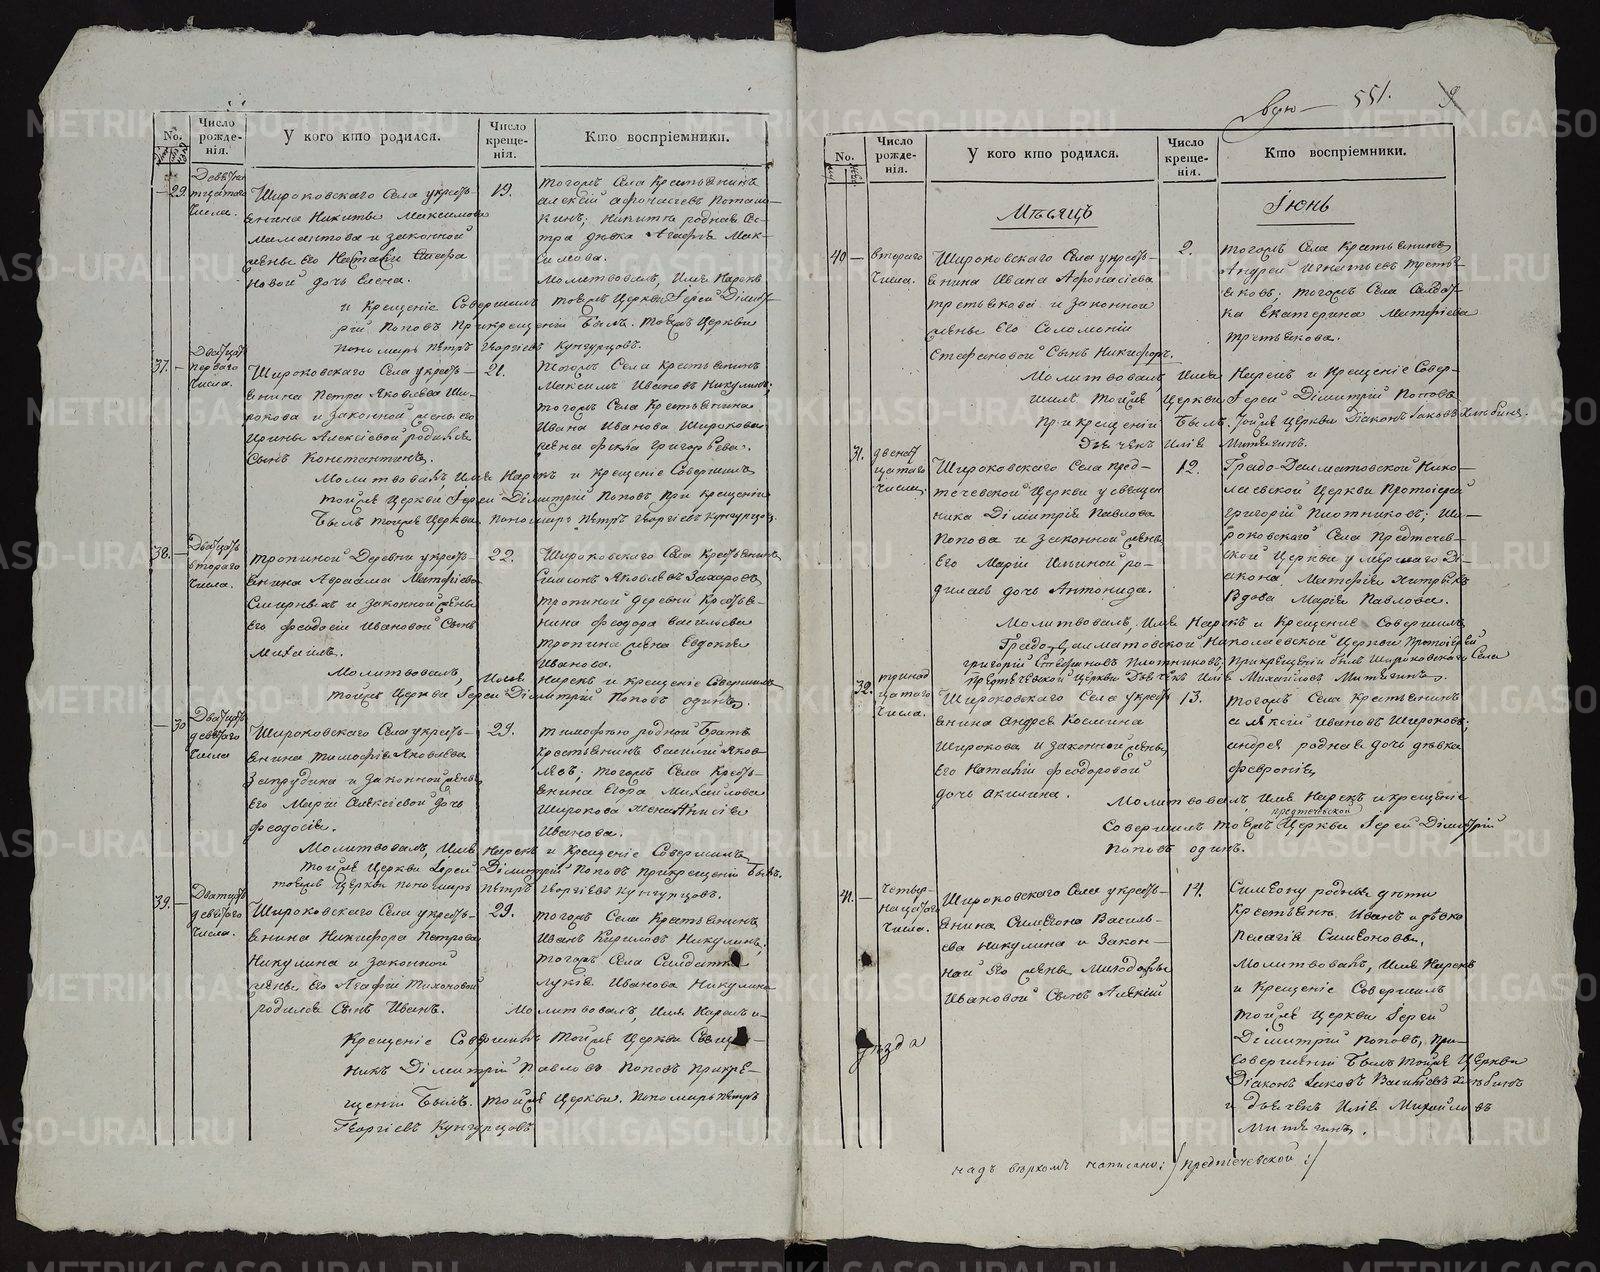 No.
Число рожде-нія.
У кого кто родился.
Число креще-нія.
Кто воспріемники.
29.
Девятна
тцатаго
Числа.
Широковскаго Села у кресть-
янина Никиты Максимова
Мамонтова и законной
жены его Наталіи Стефа
новой дочь Елена.
19.
тогожъ Села Крестьянинъ
алексій афонасьевъ Поташ-
кинъ; Никиты родная Се-
тра дѣвка Агафія Мак-
симова.
Молитвовалъ, Имя Нарекъ
и Крещеніе Совершилъ тояжъ Церкви Іерей Димит-
рій Поповъ При крещеніи Былъ. тояжъ Церкви
пономарь Петръ Георгіевъ Кунгурцовъ.
37.
Двадцать
перваго
Числа.
Широковскаго Села у кресть-
янина Петра Яковлева Ши-
рокова и Законной жены его
Ирины Алексіевой родился
Сынъ Константинъ.
21.
тогожъ Села Крестьянинъ
Максимъ Ивановъ Никулинъ;
тогожъ Села Крестьянина
Ивана Иванова Широкова
жена Фекла Григорьева.
Молитвовалъ, Имя Нарекъ и Крещеніе Совершилъ
тойже Церкви Іерей Димитрій Поповъ При крещеніи
Былъ тойже Церкви пономарь Петръ Георгіевъ Кунгурцовъ.
38.
Двадцать
втораго
Числа.
тропиной Деревни у кресть-
янина Авраама Матфіева
Смирныхъ и законной жены
Его Феодосіи Ивановой Сынъ
Михаилъ.
22.
Широковскаго Села Крестьянинъ
Симіонъ Яковлевъ Захаровъ
тропиной деревни Крестья-
нина Феодора Васильева
тропина жена Евдокія
Иванова.
Молитвовалъ, Имя Нарекъ и Крещеніе Совершилъ
тойже Церкви Іерей Димитрій Поповъ одинъ.
30
Двадцать
девятаго
Числа
Широковскаго Села у кресть-
янина тимофія Яковлева
Запрудина и Законной жены
Его Маріи Алексіевой дочь
Феодосія.
29.
тимофію родной Братъ
Крестьянинъ Василій Яков-
левъ; тогожъ Села Кресть-
янина Егора Михайлова
Широкова жена Анисія
Иванова.
Молитвовалъ, Имя Нарекъ и Крещеніе Совершилъ
тойже Церкви Іерей Димитрій Поповъ При крещеніи Былъ.
тояже Церкви пономарь Петръ Георгіевъ Кунгурцовъ.
39.
Двадцать
девятаго
Числа.
Широковскаго Села у кресть-
янина Никифора Петрова
Никулина и Законной
жены Его Агафіи Тихоновой
родился Сынъ Иванъ.
29.
тогожъ Села Крестьянинъ
Иванъ Кириловъ Никулинъ;
тогожъ Села Солдатка
Лукія Иванова Никулина
Молитвовалъ, Имя Нарекъ и
Крещеніе Совершилъ тойже Церкви Священ-
никъ Димитрій Павловъ Поповъ При кре-
щеніи Былъ. тойже Церкви. Пономарь Петръ
Георгіевъ Кунгурцовъ
551.
No.
Число рожде-нія.
У кого кто родился.
Число креще-нія.
Кто воспріемники.
Мѣсяцъ
Іюнь
40
втораго
Числа.
Широковскаго Села у кресть-
янина Ивана Афонасіева
третьякова и Законной
жены Его Соломоніи
Стефановой Сынъ Никифоръ.
2.
тогожъ Села Крестьянинъ
Андрей Игнатьевъ треть-
яковъ; тогожъ Села Солдат-
ка Екатерина Матфіева
третьякова.
Молитвовалъ Имя Нарекъ и Крещеніе Совер-
шилъ тойже Церкви Іерей Димитрій Поповъ
При крещеніи Былъ. тойже Церкви Діаконъ Іаковъ Хлыбинъ.
Дьячекъ Илія Митягинъ.
31.
двенат
цатаго
Числа
Широковскаго Села пред-
течевской Церкви у священ
ника Димитрія Павлова
Попова и Законной жены
Его Маріи Ильиной ро-
дилась дочь Антонида.
12.
Градо-Далматовской Нико-
лаевской Церкви Протоіерей
Григорій Плотниковъ; Ши-
роковскаго Села Предтечев-
ской Церкви умершаго Ді-
акона, Матфія Хитрыхъ
Вдова Марія Павлова.
Молитвовалъ, Имя Нарекъ и Крещеніе Совершилъ
Градо Далматовской Николаевской Церкви Протоіерей
Григорій Стефановъ Плотниковъ, При крещеніи былъ Широковскаго Села
Предтечевской Церкви Дьячекъ Илія Михайловъ Митягинъ.
32.
тринад
цатаго
Числа.
Широковскаго Села у кресть
янина Андрея Космина
Широкова и законной жены
Его Наталіи Феодоровой
дочь акилина.
13.
тогожъ Села Крестьянинъ
алексій Ивановъ Широковъ;
андрея родная дочь дѣвка
Февронія
Молитвовалъ Имя Нарекъ и крещеніе
предтечевской
Совершилъ тояжъ Церкви Іерей Димитрій
Поповъ одинъ.
41.
Четыр-
надцатаго
Числа.
Широковскаго Села у кресть-
янина Симеона Василь-
ева Никулина и Закон-
ной Его жены Миодоры
Ивановой Сынъ Алексій
14.
Симеону родныя дѣти
Крестьянинъ Иванъ и дѣвка
Пелагія Симеоновы,
Молитвовалъ, Имя Нарекъ
и Крещеніе Совершилъ
тойже Церкви Іерей
Димитрій Поповъ, При
совершеніи Былъ тойже Церкви
Діаконъ Іаковъ Василіевъ Хлыбинъ
и дьячекъ Илія Михайловъ
Митягинъ.
уѣзда
надъ верхомъ написано: предтечевской